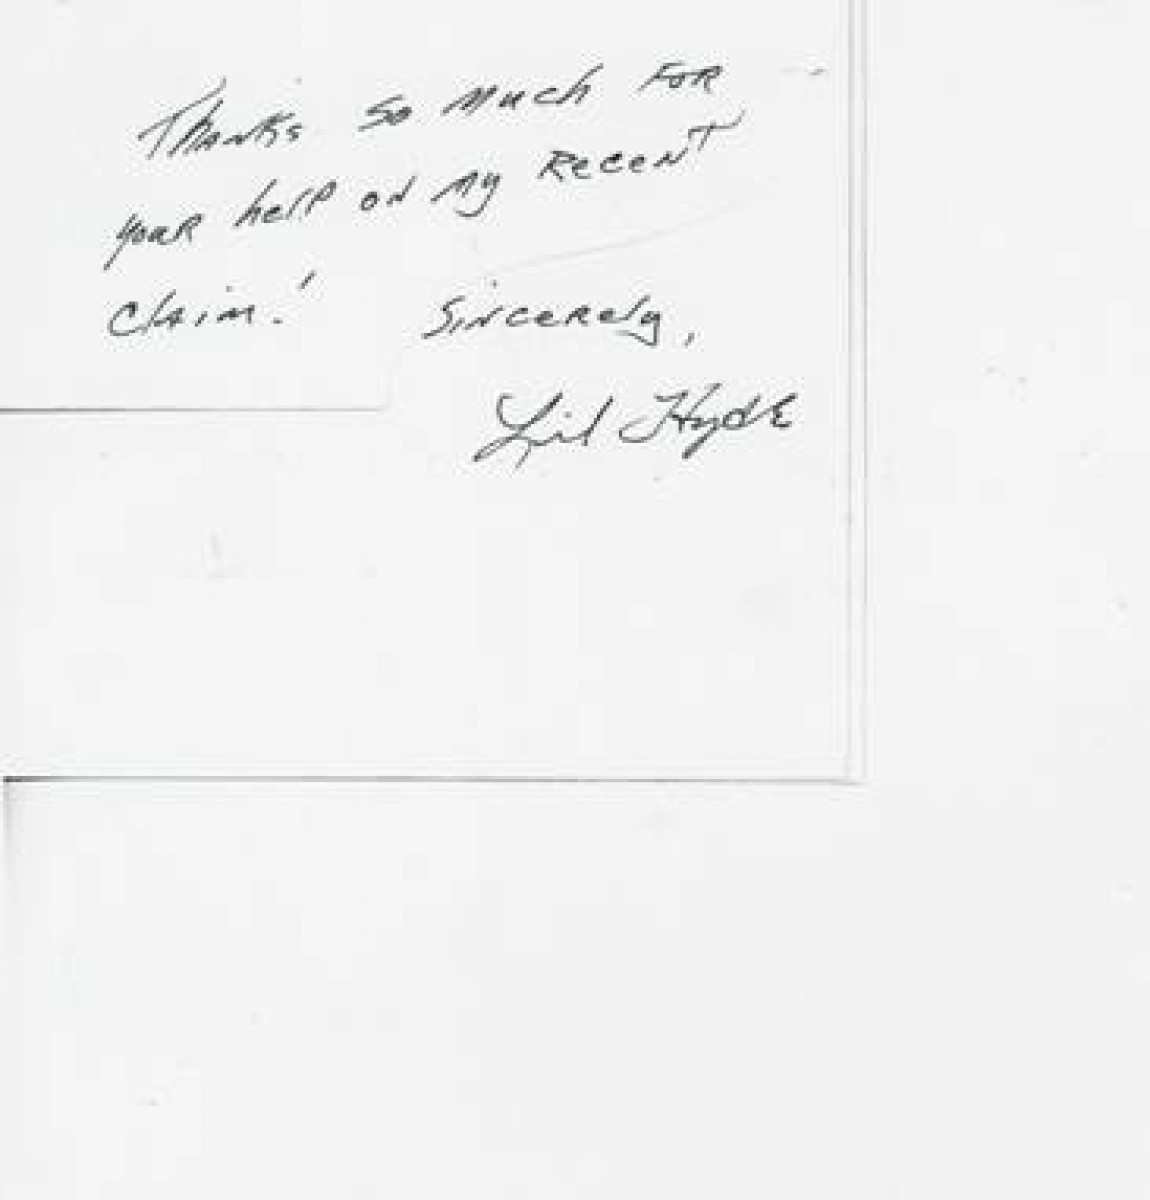 Thanks so much FOR
your help on my Recent
claim!
Sincerely,
Lil Hyde